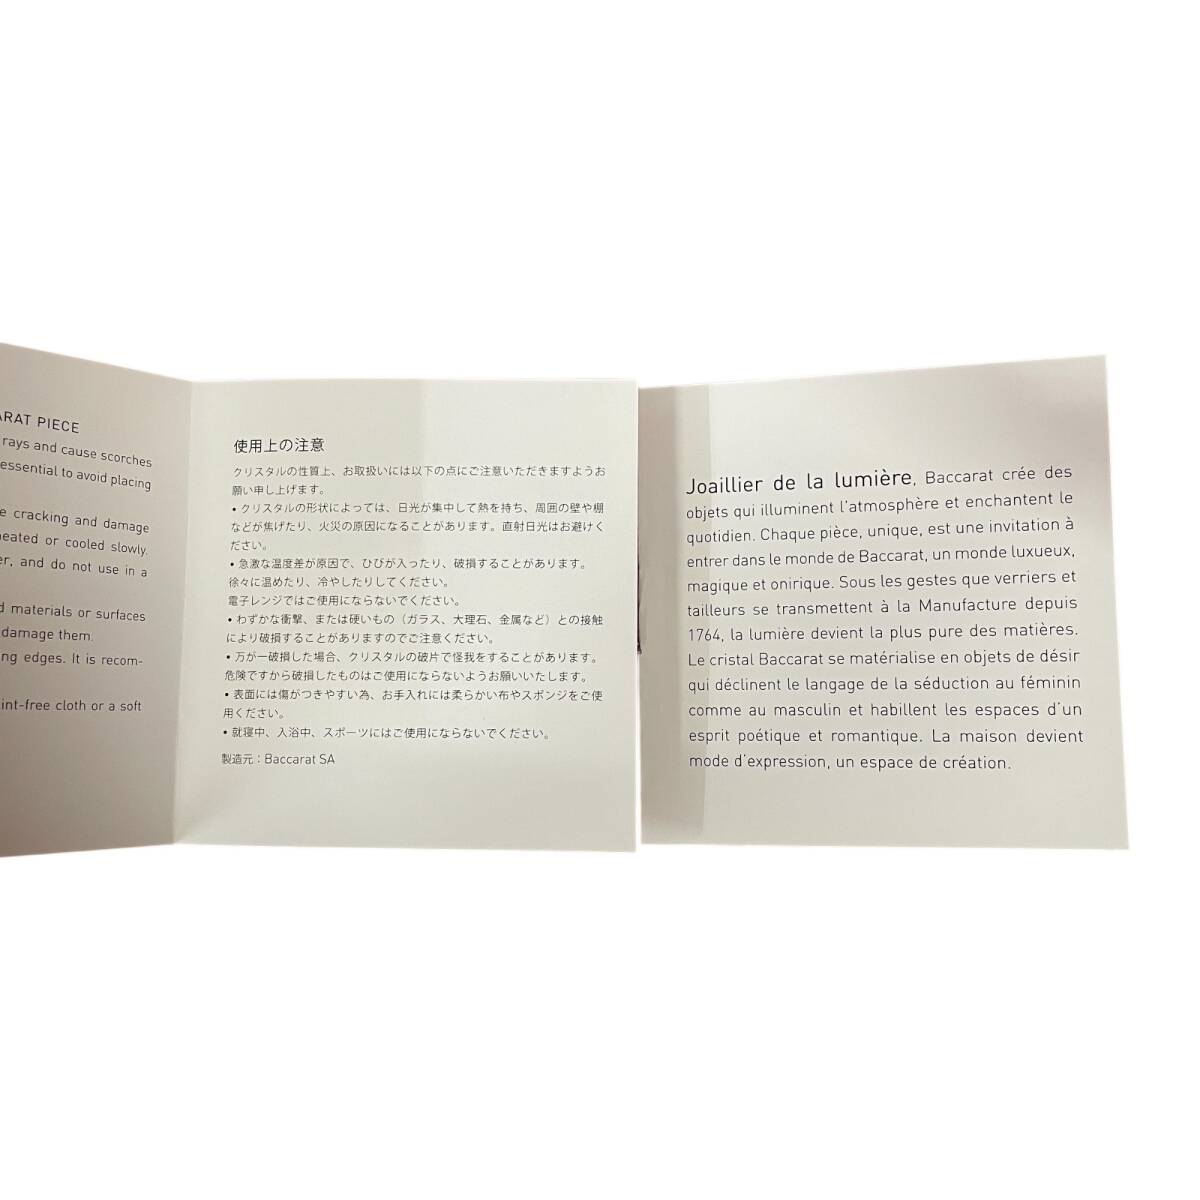 ARAT PIECE
rays and cause scorches
essential to avoid placing
e cracking and damage
heated or cooled slowly.
er, and do not use in a
d materials or surfaces
damage them.
ng edges. It is recom-
int-free cloth or a soft
使用上の注意
クリスタルの性質上、お取扱いには以下の点にご注意いただきますようお
願い申し上げます。
• クリスタルの形状によっては、日光が集中して熱を持ち、周囲の壁や棚
などが焦げたり、火災の原因になることがあります。直射日光はお避けく
ださい。
• 急激な温度差が原因で、ひびが入ったり、破損することがあります。
徐々に温めたり、冷やしたりしてください。
電子レンジではご使用にならないでください。
• わずかな衝撃、または硬いもの（ガラス、大理石、金属など）との接触
により破損することがありますのでご注意ください。
• 万が一破損した場合、クリスタルの破片で怪我をすることがあります。
危険ですから破損したものはご使用にならないようお願いいたします。
• 表面には傷がつきやすい為、お手入れには柔らかい布やスポンジをご使
用ください。
• 就寝中、入浴中、スポーツにはご使用にならないでください。
製造元：Baccarat SA
Joaillier de la lumière, Baccarat crée des
objets qui illuminent l'atmosphère et enchantent le
quotidien. Chaque pièce, unique, est une invitation à
entrer dans le monde de Baccarat, un monde luxueux,
magique et onirique. Sous les gestes que verriers et
tailleurs se transmettent à la Manufacture depuis
1764, la lumière devient la plus pure des matières.
Le cristal Baccarat se matérialise en objets de désir
qui déclinent le langage de la séduction au féminin
comme au masculin et habillent les espaces d'un
esprit poétique et romantique. La maison devient
mode d'expression, un espace de création.